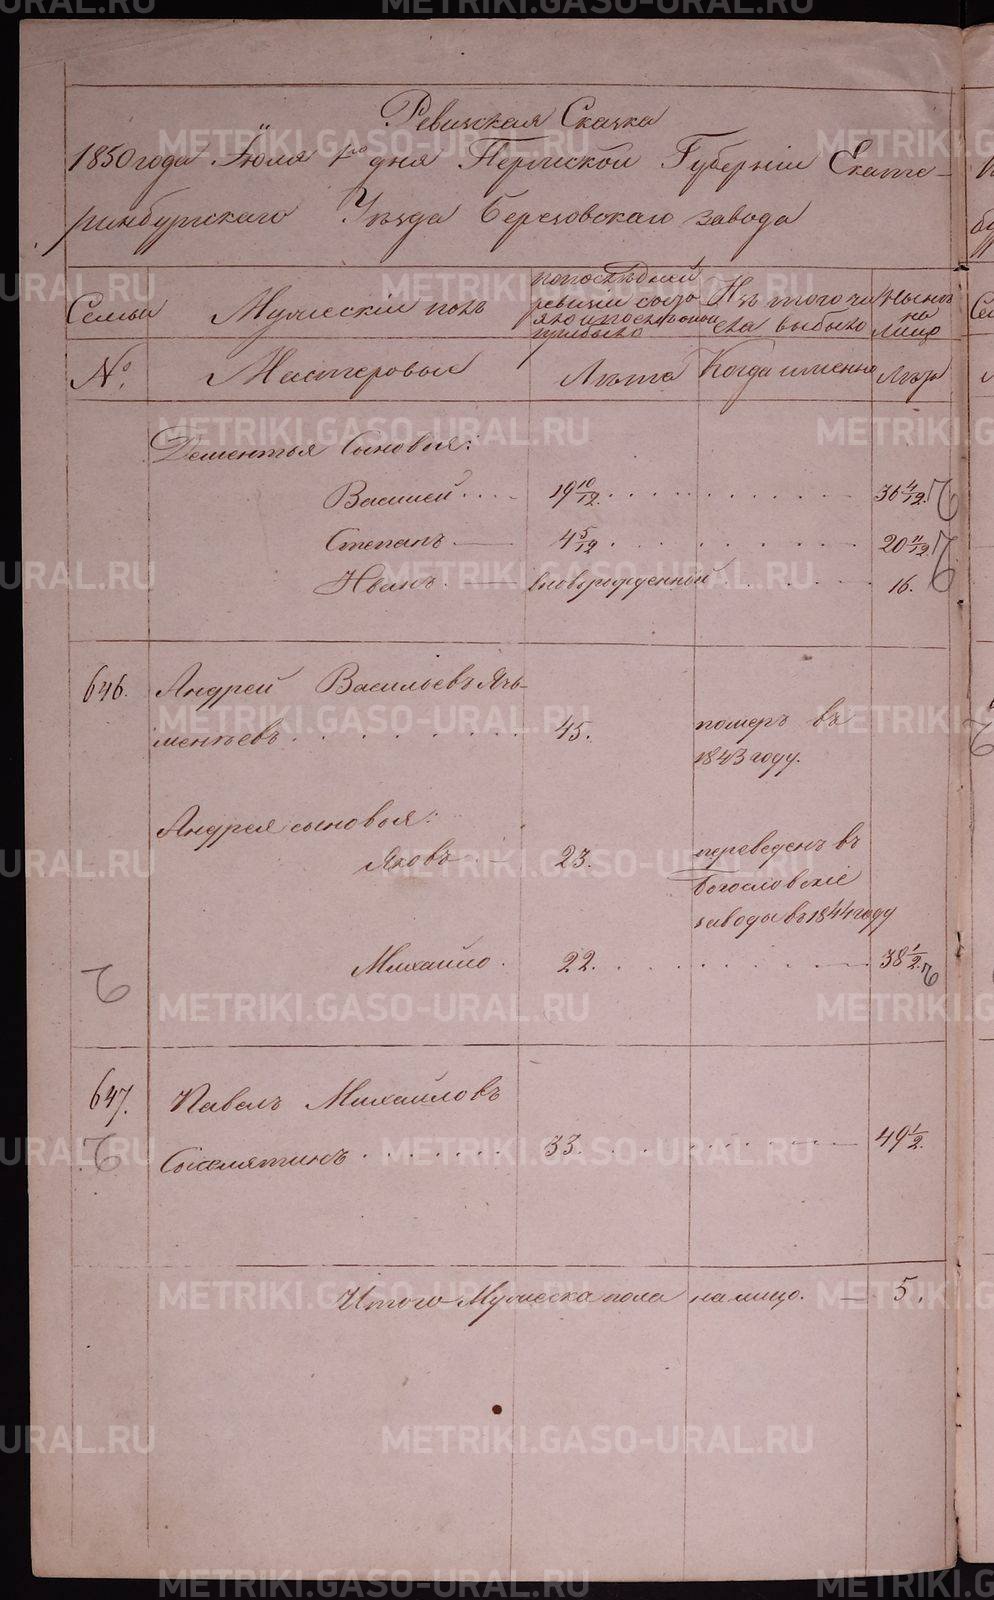 Ревизская Сказка
1850 года Іюля 1го дня Пермской Губерніи Екате-
ринбургскаго Уѣзда Березовскаго завода
Семьи
Мужескій полъ
по последней
ревизіи состо
яло и после оной
прибыло
Изъ того чи
сла выбыло
Нынѣ
на
лицо
№.
Мастеровые
Лѣта
Когда именно
Лѣта
Дементья Сыновья:
Василей 19 10/12. 36 4/12.
Степанъ 4 5/12 20 11/12.
Иванъ. вноворожденный 16.
646. Андрей Васильевъ
45. померъ въ
1843 году.
Андрея сыновья:
Яковъ 23. переведенъ въ
Богословскіе
заводы въ 1844 году
Михайло. 22. 38 1/2.
647. Павелъ Михайловъ
33. 49 1/2.
Итого Мужеска пола на лицо. — 5.
METRIKI.GASO-URAL.RU